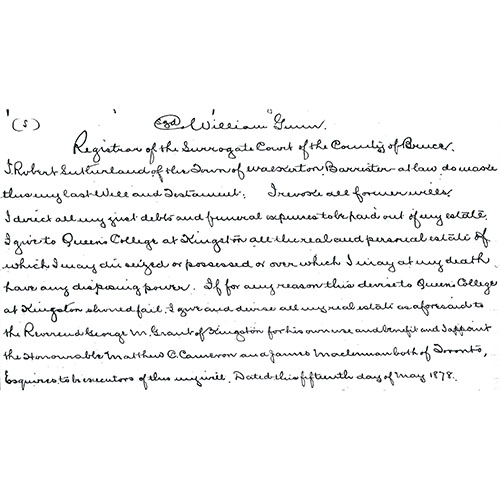 (S) Sgd. William Gunn.
Registrar of the Surrogate Court of the County of Bruce.
I, Robert Sutherland of the Town of Walkerton Barrister at law do make
this my last Will and Testament. I revoke all former wills.
I direct all my just debts and funeral expenses to be paid out of my estate.
I give to Queens College at Kingston all the real and personal estate of
which I may die seized or possessed or over which I may at my death
have any disposing power. If for any reason this devise to Queens College
at Kingston should fail, I give and devise all my real estate as aforesaid to
the Reverend George M. Grant of Kingston for his own use and benefit and I appoint
the Honourable Matthew C. Cameron and James Maclennan both of Toronto,
Esquires, to be executors of this my will. Dated this fifteenth day of May 1878.